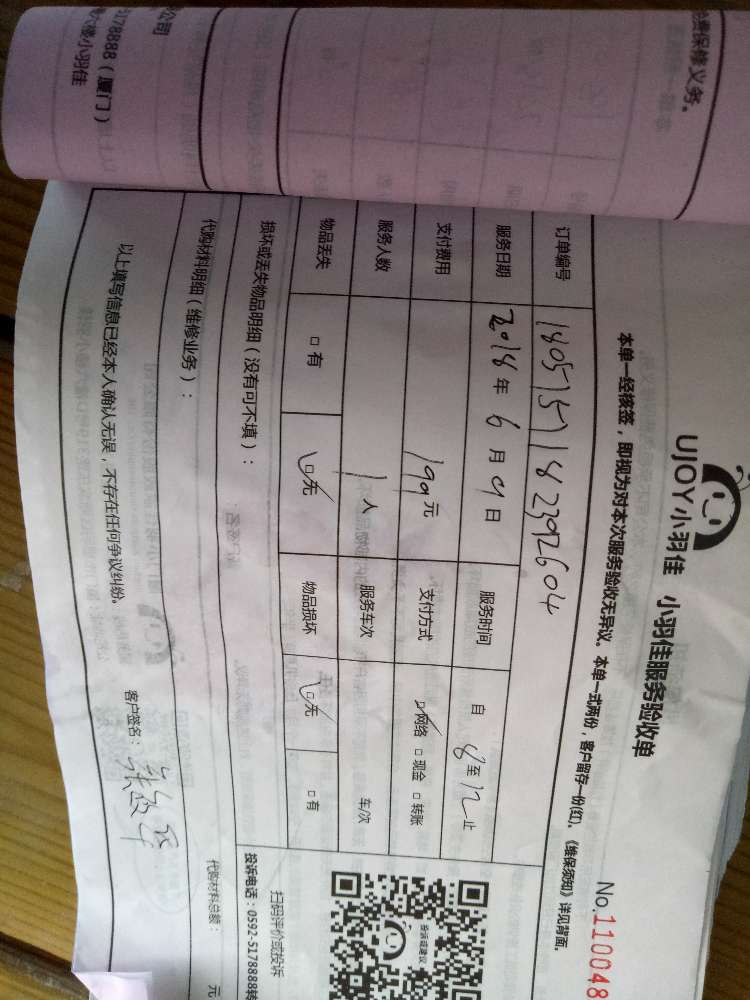 免费保修义务。
公司
5178888（厦门）
小羽佳
UJOY小羽佳 小羽佳服务验收单
No.110048
本单一经核签，即视为对本次服务验收无异议。本单一式两份，客户留存一份(红)。《维保须知》详见背面。
订单编号
服务日期 2018年6月9日 服务时间 自8至12止
支付费用 199元 支付方式 ☑网络 □现金 □转账
服务人数 1人 服务车次 车/次
物品丢失 □有 ☑无 物品损坏 ☑无 □有
损坏或丢失物品明细（没有可不填）：
投诉或建议
扫码评价或投诉
投诉电话：0592-5178888转
代购材料明细（维修业务）：
代购材料总额： 元
以上填写信息已经本人确认无误，不存在任何争议纠纷。
客户签名：